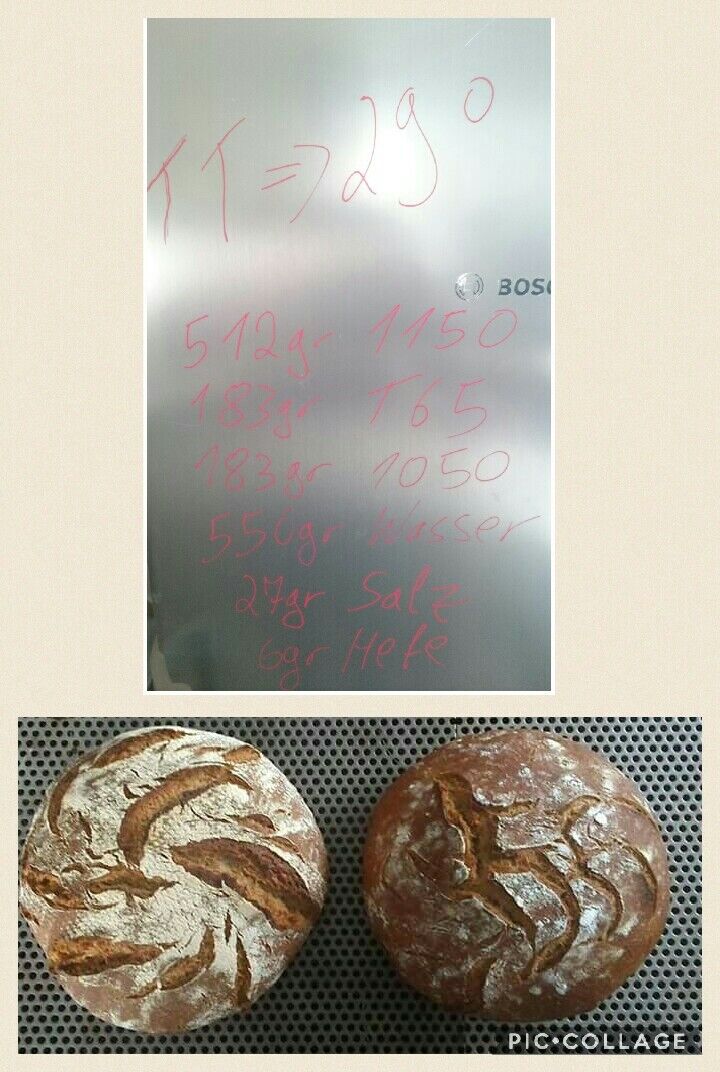 TT => 29°
BOSC
512gr 1150
183gr T65
183gr 1050
550gr Wasser
27gr Salz
6gr Hefe
PIC•COLLAGE